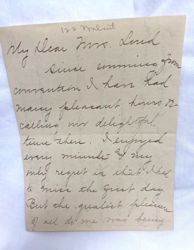 122 Walnut
My Dear Mrs. Lord
Since coming from
convention I have had
many pleasant hours re
calling our delightful
time there. I enjoyed
every minute & my
only regret is that I had
to miss the first day
But the greatest pleasure
of all to me was being